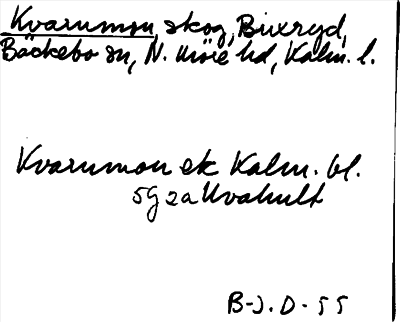 Kvarnmon, skog, Buxryd,
Bäckebo sn, N. Möre hd, Kalm. l.
Kvarnmon ek Kalm. bl.
5g 2a Uvahult
B-J. D. 55